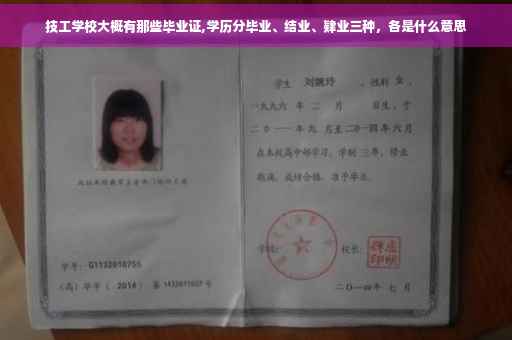 技工学校大概有那些毕业证,学历分毕业、结业、肄业三种，各是什么意思
学生 刘婉玲 ，性别 女 ，
一九九六 年 二 月 日生，于
二〇一一 年 九 月至 二〇一四 年 六 月
在本校高中部学习，学制 三 年，修业
期满，成绩合格，准予毕业。
学号： G1132010755
学校： 校长：
(高) 毕字 ( 2014 ) 第 1432011027 号
二〇一四年 七 月